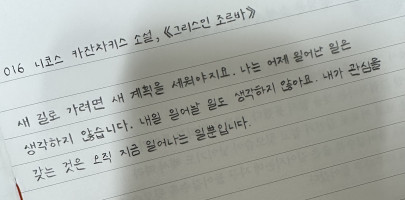 016 니코스 카잔차키스 소설, 《그리스인 조르바》
새 길로 가려면 새 계획을 세워야지요. 나는 어제 일어난 일은
생각하지 않습니다. 내일 일어날 일도 생각하지 않아요. 내가 관심을
갖는 것은 오직 지금 일어나는 일뿐입니다.